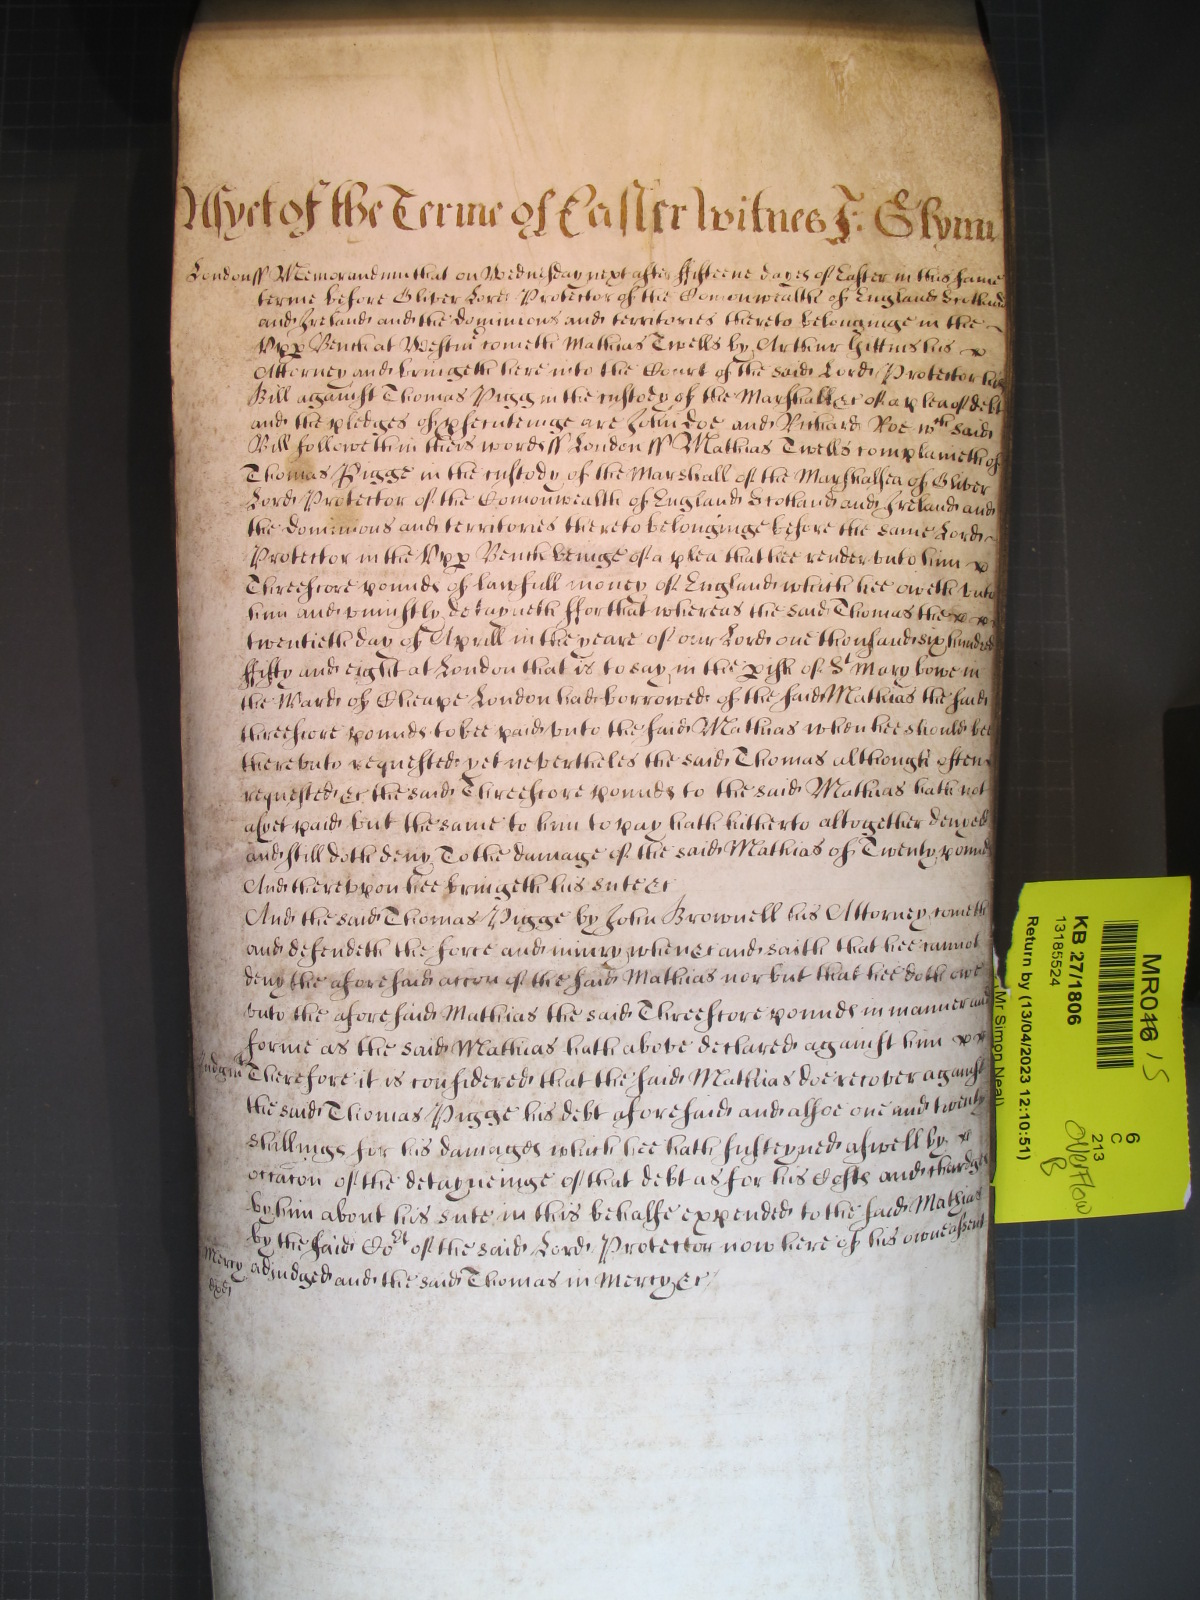 Asyet of the Terme of Easter Witnes J: Glynn
London ss Memorandum that on Wednesday next after ffifteene dayes of Easter in this same
terme before Oliver Lord Protector of the Comonwealth of England Scotland
and Ireland and the dominions and territories thereto belonginge in the
Upp Bench at Westmr cometh Mathias Twells by Arthur Gittins his
Attorney and bringeth here into the Court of the said Lord Protector his
Bill against Thomas Pigg in the custody of the Marshall &c of a plea of debt
and the pledges of psecuteinge are John Doe and Richard Roe wch said
Bill followeth in theis words ss London ss Mathias Twells complaineth of
Thomas Pigge in the custody of the Marshall of the Marshalsea of Oliver
Lord Protector of the Comonwealth of England Scotland and Ireland and
the dominions and territories thereto belonginge before the same Lord
Protector in the Upp Bench beinge of a plea that hee render unto him
Threescore pounds of lawfull money of England which hee oweth unto
him and uniustly detayneth ffor that whereas the said Thomas the
twentieth day of Aprill in the yeare of our Lord one thousand six hundred
ffifty and eight at London that is to say in the pish of St Mary bowe in
the Ward of Cheape London had borrowed of the said Mathias the said
threescore pounds to bee paid unto the said Mathias when hee should bee
thereunto requested yet nevertheles the said Thomas although often
requested &c the said Threescore pounds to the said Mathias hath not
asyet paid but the same to him to pay hath hitherto altogether denyed
and still doth deny To the damage of the said Mathias of Twenty pounds
And thereuppon hee bringeth his sute &c
And the said Thomas Pigge by John Brownell his Attorney cometh
and defendeth the force and iniury when &c and saith that hee cannot
deny the aforesaid accon of the said Mathias nor but that hee doth owe
unto the aforesaid Mathias the said Threescore pounds in manner and
forme as the said Mathias hath above declared against him
Judgmt Therefore it is considered that the said Mathias doe recover against
the said Thomas Pigge his debt aforesaid and alsoe one and twenty
shillings for his damages which hee hath susteyned aswell by
occacon of the detayneinge of that debt as for his Costs and chardges
by him about his sute in this behalfe expended to the said Mathias
by the said Cort of the said Lord Protector now here of his owne assent
Mercy adjudged and the said Thomas in Mercy &c
MR016 / 5
KB 27/1806
13185524
Return by (13/04/2023 12:10:51)
(Mr Simon Neal)
6
C
213
Overflow
B